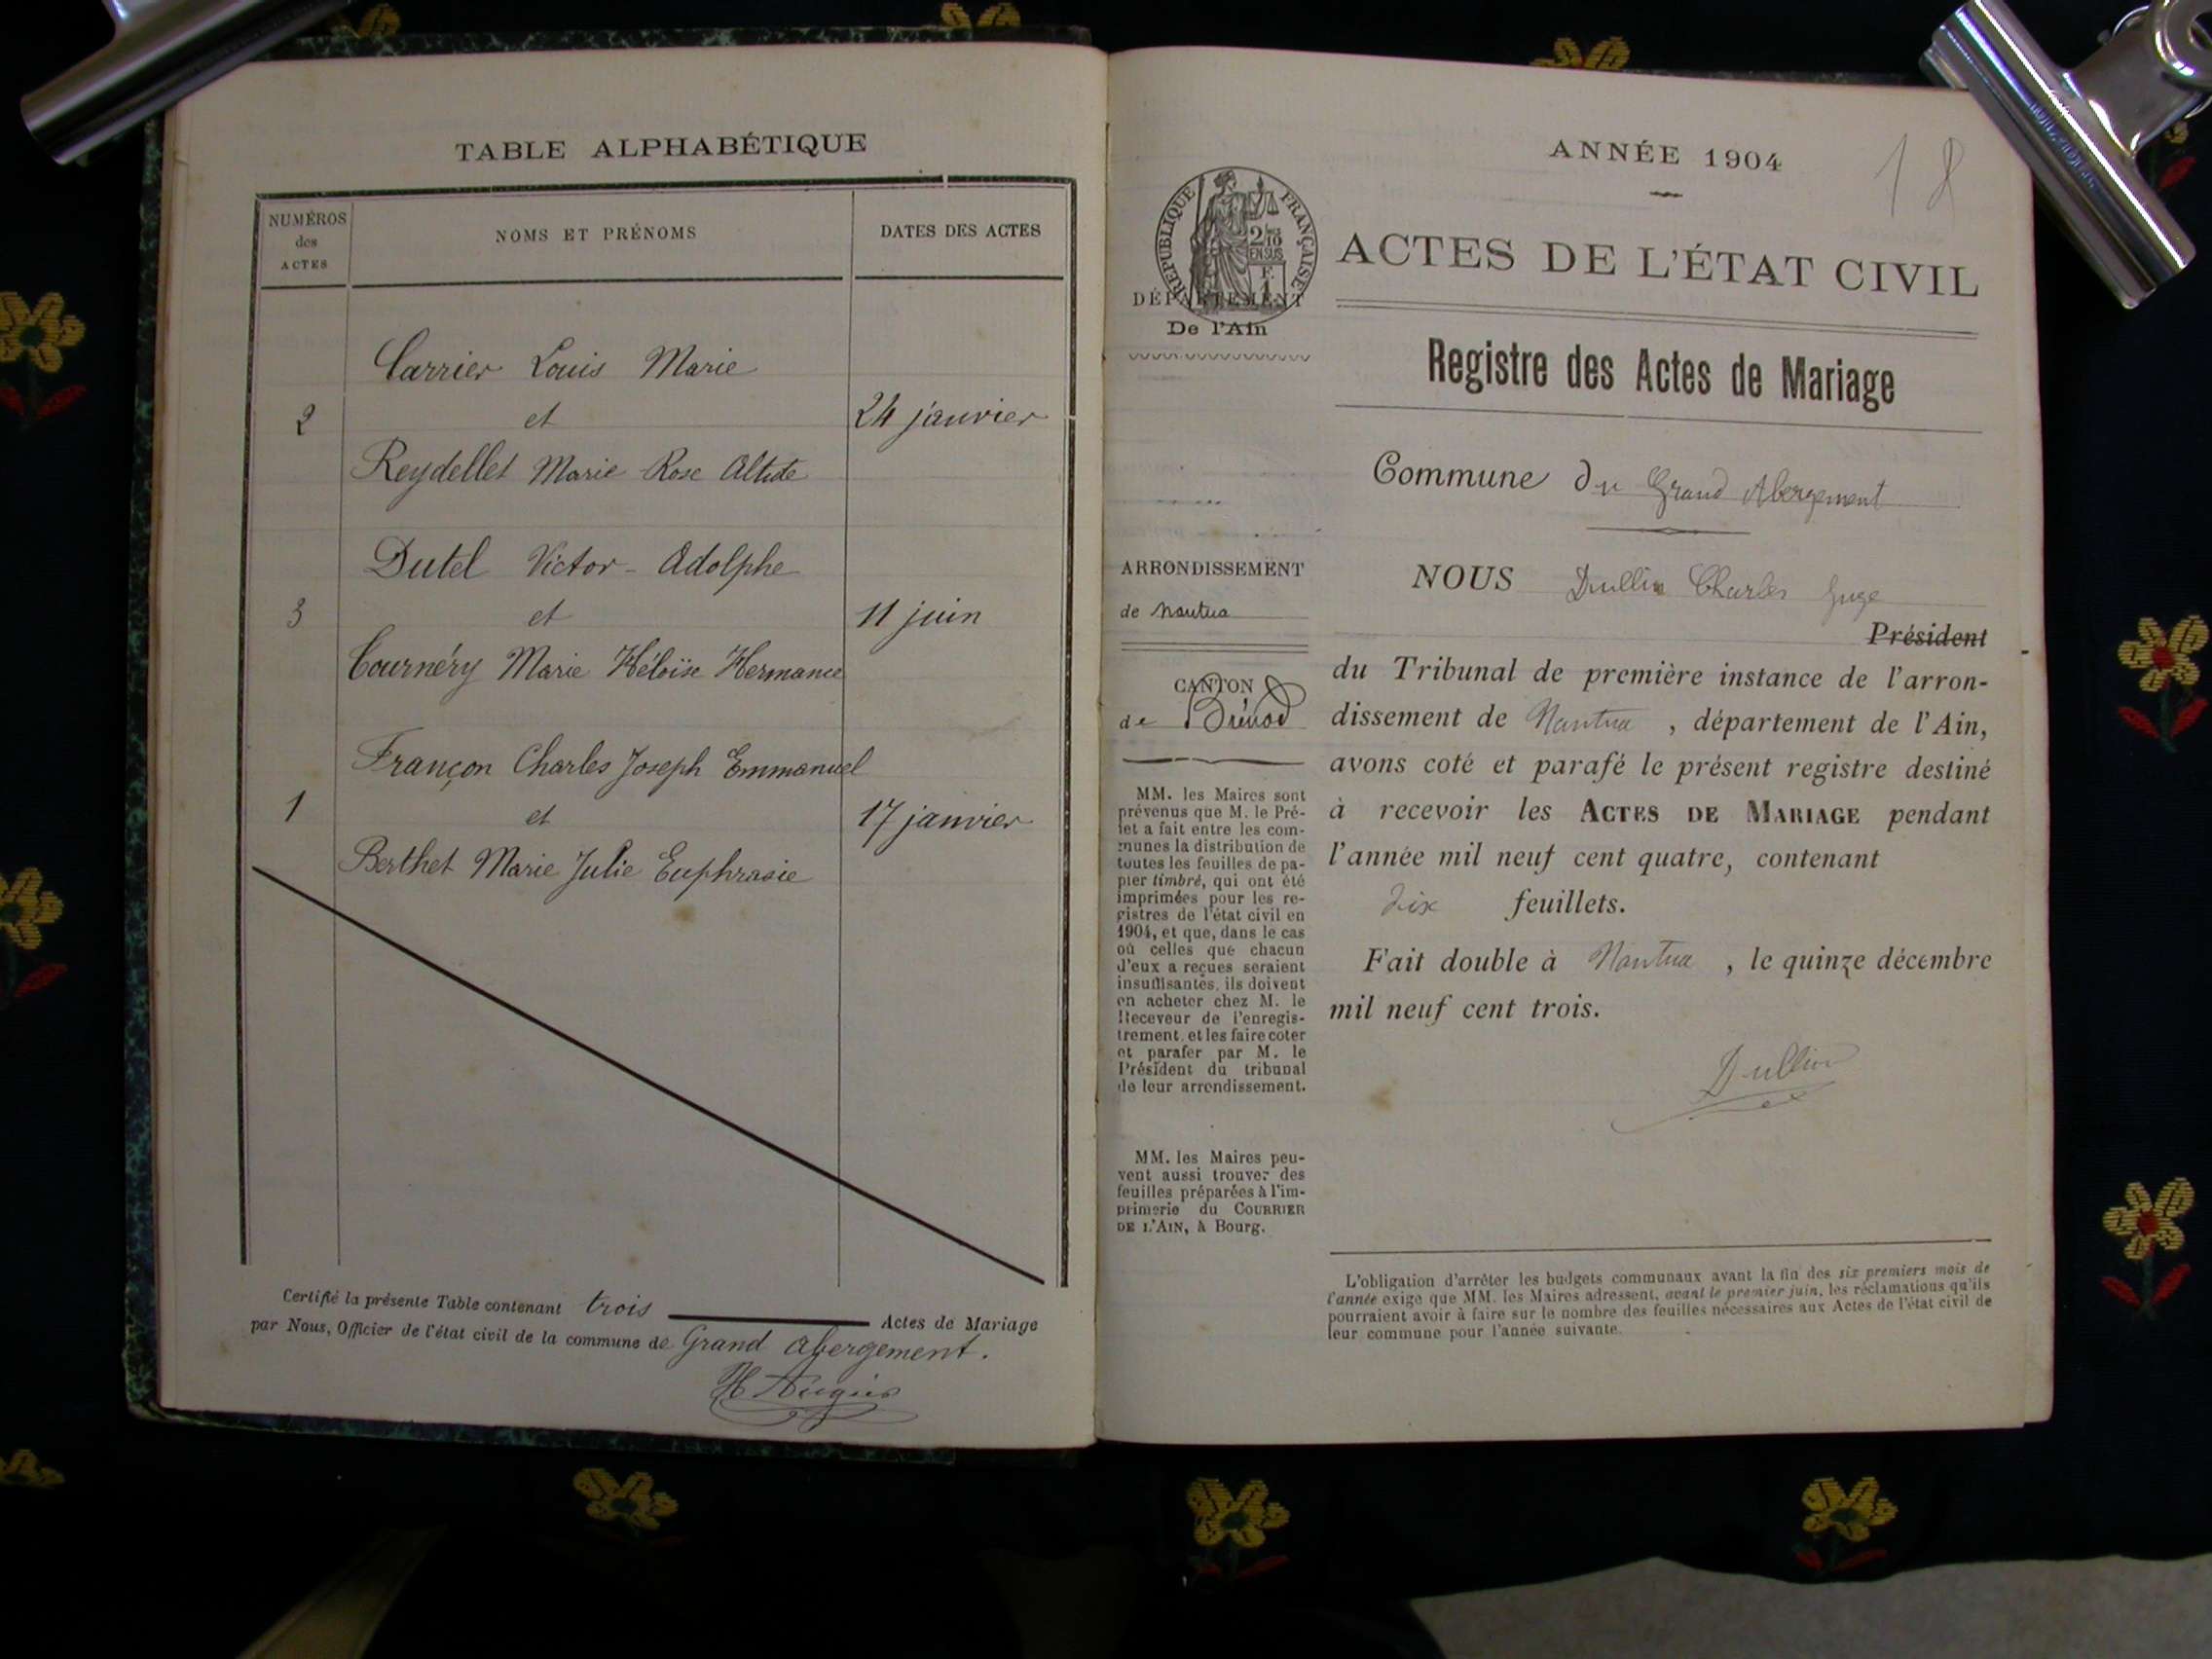 TABLE ALPHABÉTIQUE
NUMÉROS
des
ACTES
NOMS ET PRÉNOMS
DATES DES ACTES
Carrier Louis Marie
2 et 24 janvier
Reydellet Marie Rose
Dutel Victor-Adolphe
3 et 11 juin
Cournéry Marie Héloïse Hermance
Françon Charles Joseph Emmanuel
1 et 17 janvier
Berthet Marie Julie Euphrasie
Certifié la présente Table contenant trois Actes de Mariage
par Nous, Officier de l'état civil de la commune de Grand Abergement.
18
ANNÉE 1904
RÉPUBLIQUE FRANÇAISE
2/10
EN SUS
F.
1
DÉPARTEMENT
De l'Ain
ACTES DE L'ÉTAT CIVIL
Registre des Actes de Mariage
Commune du Grand Abergement
ARRONDISSEMENT
de Nantua
CANTON
de Brénod
MM. les Maires sont
prévenus que M. le Pré-
fet a fait entre les com-
munes la distribution de
toutes les feuilles de pa-
pier timbré, qui ont été
imprimées pour les re-
gistres de l'état civil en
1904, et que, dans le cas
où celles que chacun
d'eux a reçues seraient
insuffisantes, ils doivent
en acheter chez M. le
Receveur de l'enregis-
trement, et les faire coter
et parafer par M. le
Président du tribunal
de leur arrondissement.
MM. les Maires peu-
vent aussi trouver des
feuilles préparées à l'im-
primerie du COURRIER
DE L'AIN, à Bourg.
NOUS Dullin Charles Juge
Président
du Tribunal de première instance de l'arron-
dissement de Nantua , département de l'Ain,
avons coté et parafé le présent registre destiné
à recevoir les ACTES DE MARIAGE pendant
l'année mil neuf cent quatre, contenant
dix feuillets.
Fait double à Nantua , le quinze décembre
mil neuf cent trois.
Dullin
L'obligation d'arrêter les budgets communaux avant la fin des six premiers mois de
l'année exige que MM. les Maires adressent, avant le premier juin, les réclamations qu'ils
pourraient avoir à faire sur le nombre des feuilles nécessaires aux Actes de l'état civil de
leur commune pour l'année suivante.